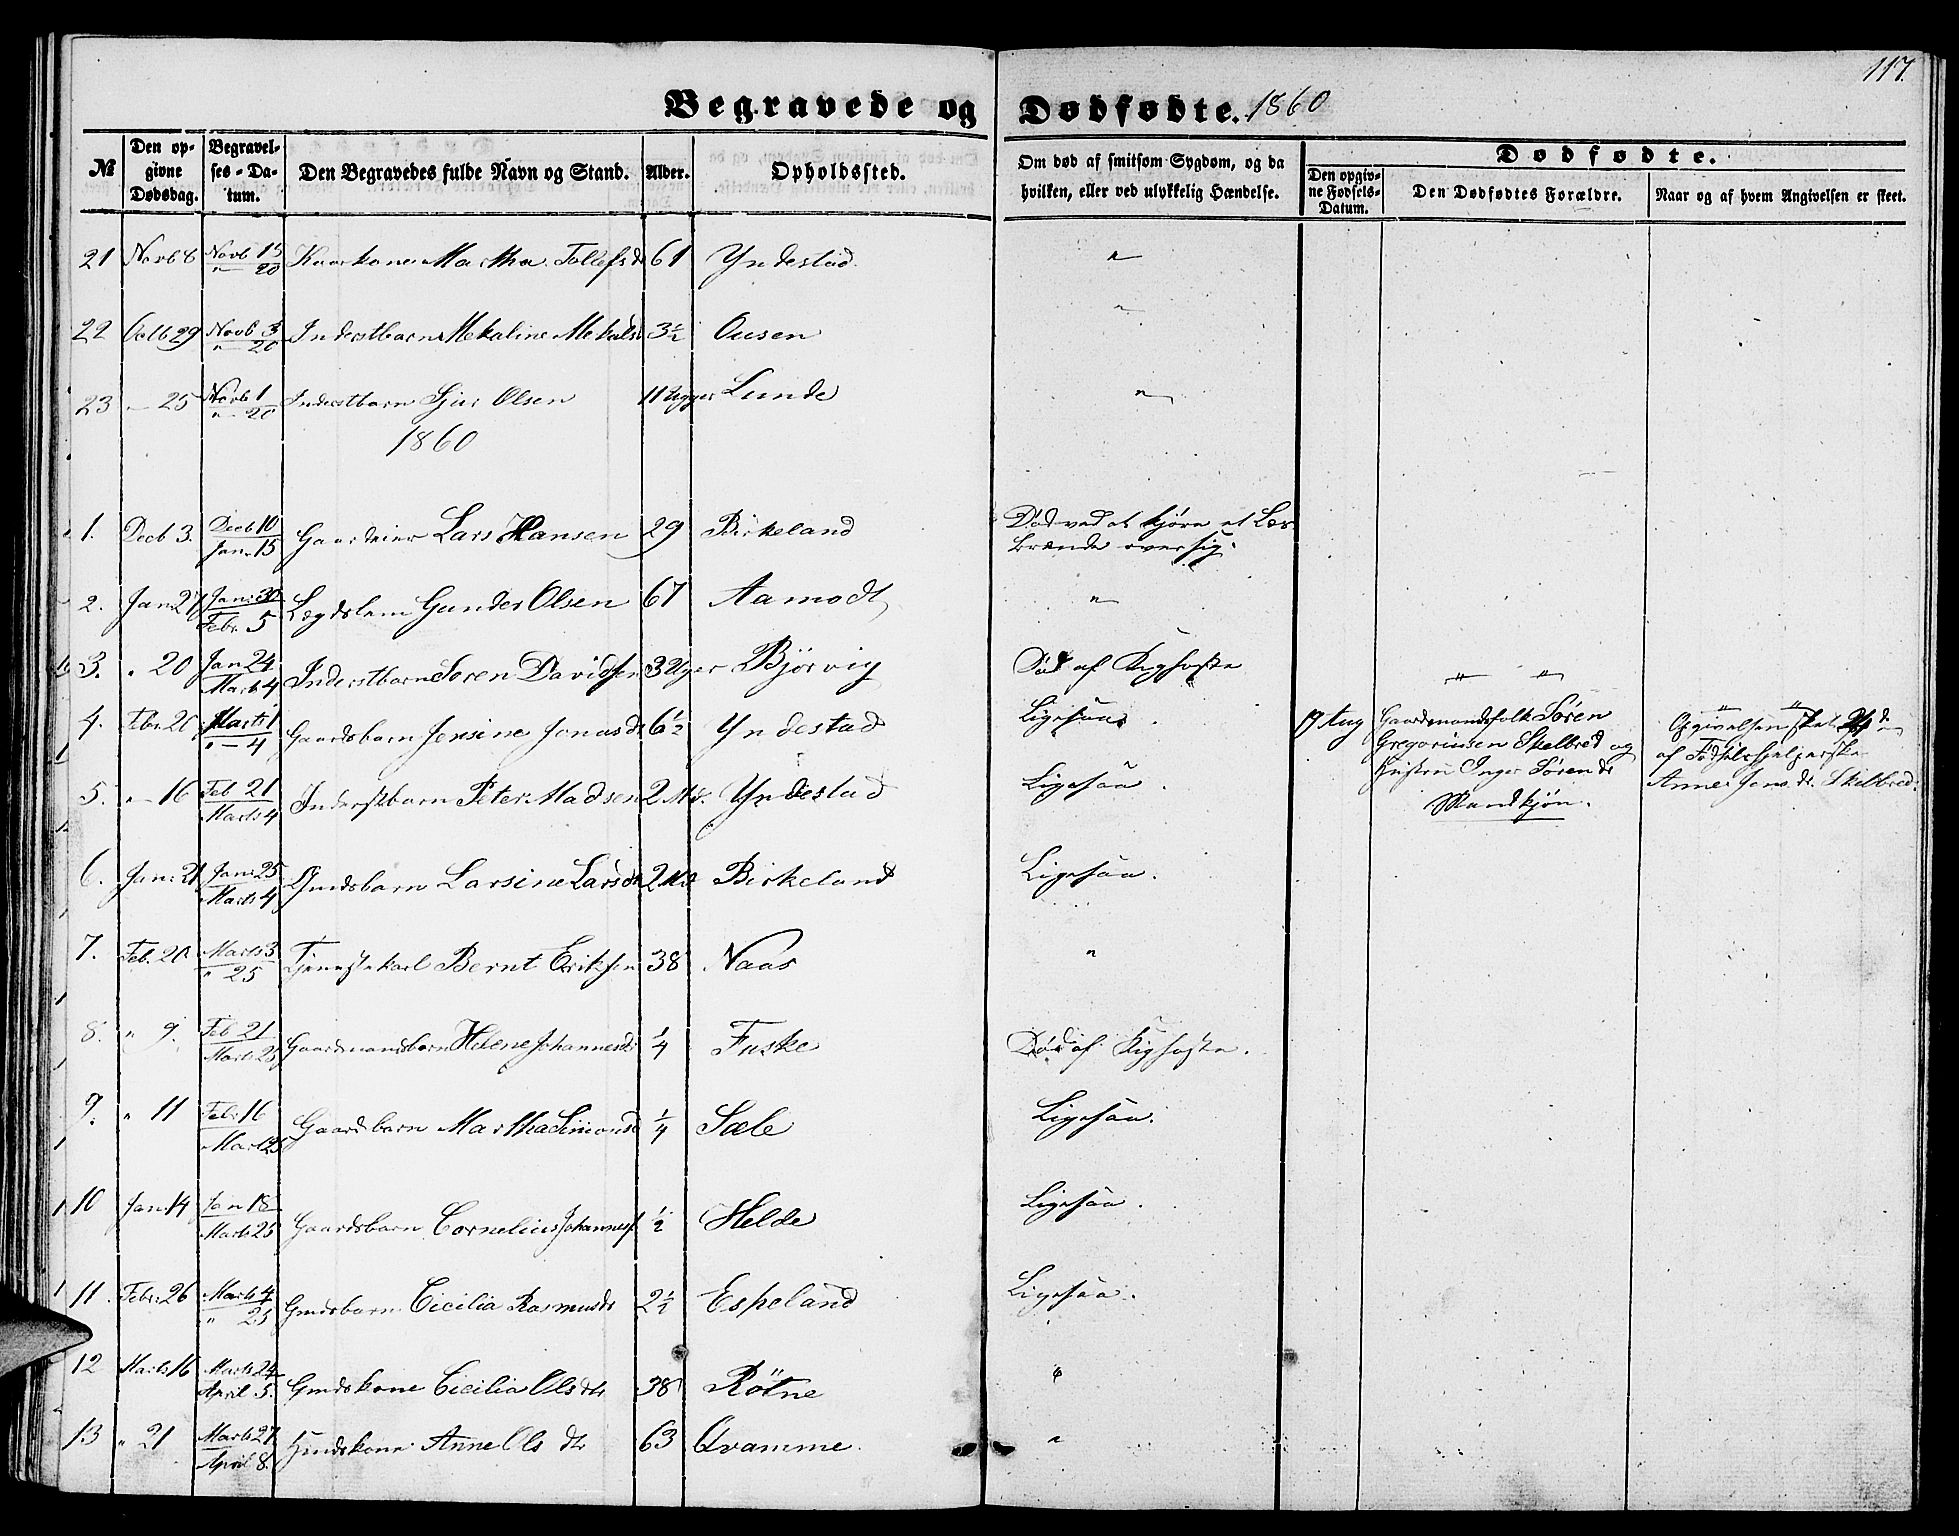 117.
Begravede og Dødfødte. 1860
№
Den opgivne Dødsdag.
Begravelses-Datum.
Den Begravedes fulde Navn og Stand.
Alder.
Opholdssted.
Om død af smitsom Sygdom, og da hvilken, eller ved ulykkelig Hændelse.
Dødfødte.
Den opgivne Fødsels-Datum.
Den Dødfødtes Forældre.
Naar og af hvem Angivelsen er skeet.
21 Novb 8 Novb 15 " 20 Kaarkone Martha Tollefsd 61 Yndestad "
22 Octb 29 Novb 3 " 20 Inderstbarn Mekaline Mekalsd 3½ Ousen "
23 " 25 Novb 1 " 20 Inderstbarn Sjur Olsen 11 Uger Lunde "
1860
1. Decb 3. Decb 10 Jan. 15 Gaardeier Lars Hansen 29 Birkeland Død ved at kjøre et Læs
Brænde over sig.
2. Jan: 27 Jan: 30 Febr. 5 Lægdslem Gunder Olsen 67 Aamodt "
3. " 20 Jan 24 Marts 4 Inderstbarn Søren Davidsen 3 Uger Bjørvig Død af Kighoste " "
4. Febr. 26 Marts 1 " 4 Gaardsbarn Jensine Jonasdr 6½ Yndestad Ligesaa.
19 Aug Gaardmandsfolk Søren
Gregoriusen Skelbred og
Hustru Inger Sørensdr
Mandkjøn.
" "
Opgivelsen skeet 24de
af Fødselshjelperske
Anne Jonsdr. Skelbred.
5. " 16 Feb 21 Marts 4 Inderstbarn Peter Madsen 2 Md. Yndestad Ligesaa.
6. Jan: 21 Jan: 25 Marts 4 Gmdsbarn Larsine Larsdr 2 Md Birkeland Ligesaa.
7. Feb. 20 Marts 3 " 25 Tjenestekarl Bernt Eriksen 38 Naas "
8. " 9. Feb 21 Marts 25 Gaardmandsbarn Helene Johannesdr ¼ Fuske Død af Kighoste.
9. " 11 Feb: 16 Marts 25 Gaardsbarn Martha Simonsd ¼ Sæle Ligesaa.
10 Jan. 14 Jan 18 Marts 25 Gaardsbarn Cornelius Johanness. ½ Helde Ligesaa.
11. Febr. 26 Marts 4 " 25 Gmdsbarn Cicilia Rasmusdr 2½ Espeland Ligesaa.
12 Marts 16 Marts 24 April 5. Gmdskone Cicilia Olsdtr 38 Rötne "
13 " 21 Marts 27 April 8. Hmdskone Anne Ols dtr 63 Qvamme. "